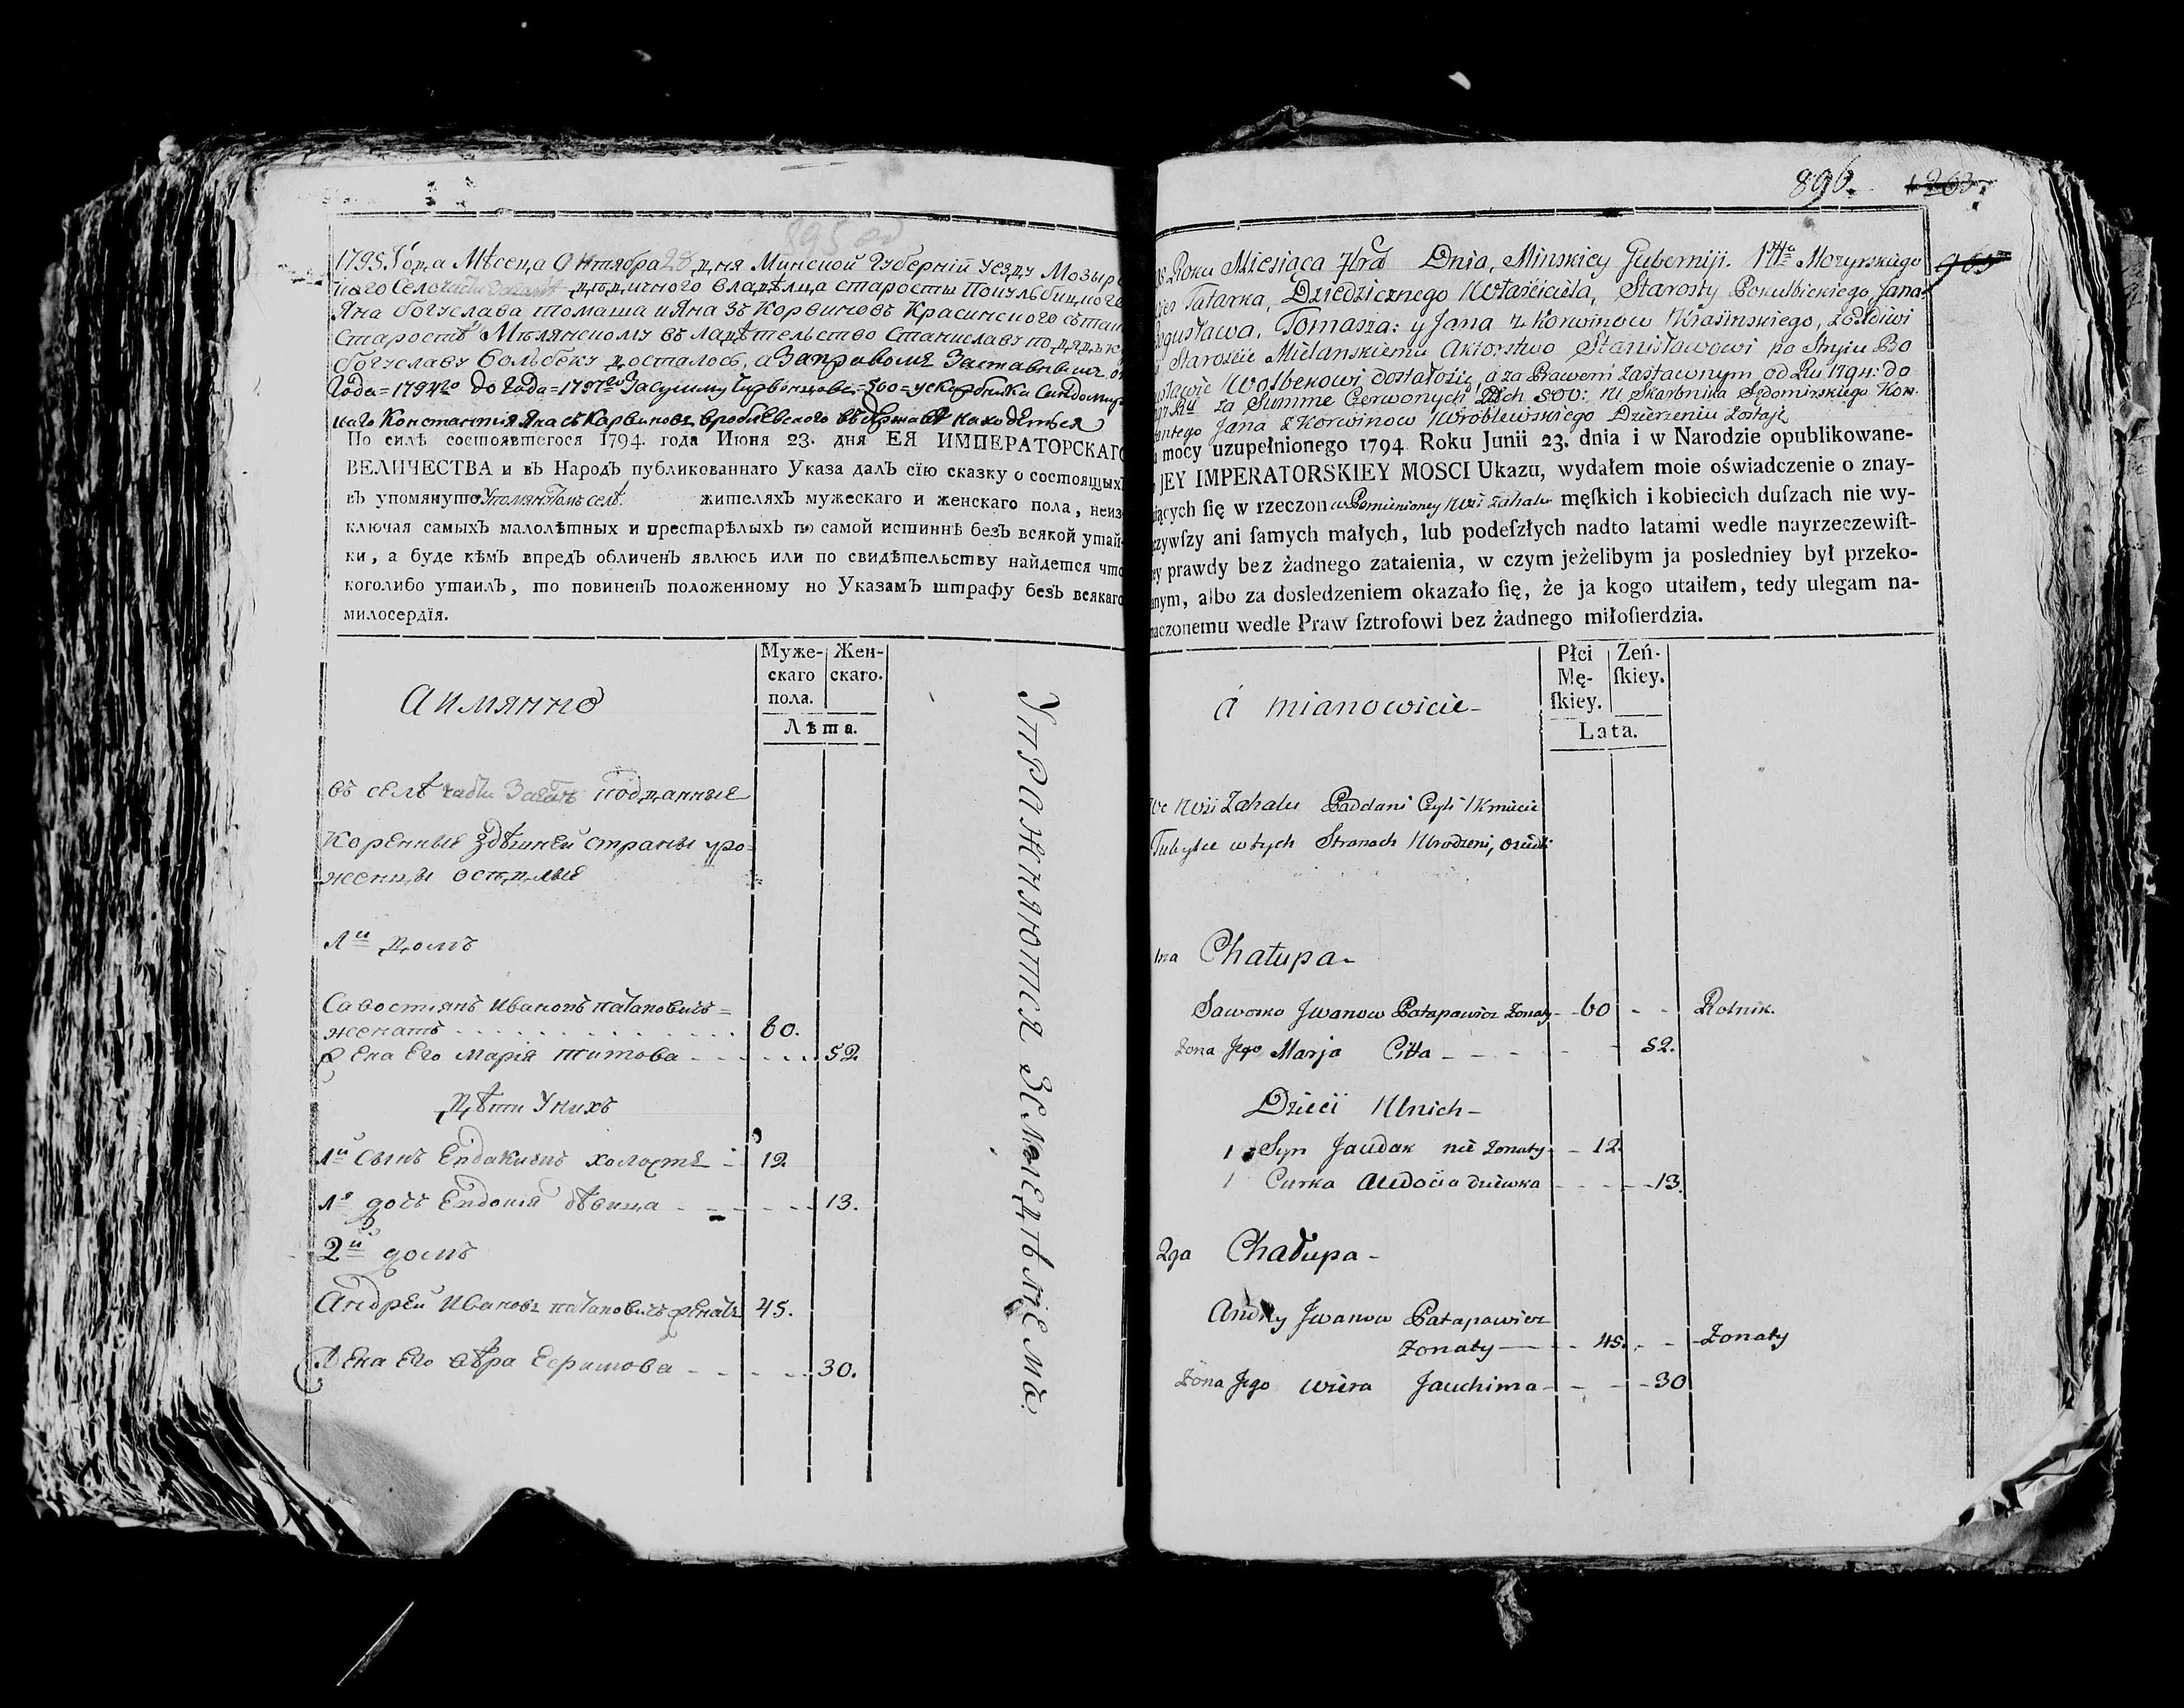 895 об
1795. Года Мѣсеца Октября 28 дня Минской Губерній уезду Мозыр
каго Село дѣдичного владѣлца старосты Покульбицкого
Яна богуслава томаша и Яна зъ Корвиновъ Красинского
старостѣ Мѣлянскому въ ладѣтельство Станиславу по дядьке
богуславу вольбеку досталось, а Заправомъ Заставнымъ о
Года = 1794го до Года = 1797го За сумму Червонцовъ = 500 = у скарбника Сендомир
каго Константія Яна съ Карвиновъ Вроблевского въ державѣ находеться
По силѣ состоявшегося 1794. года Июня 23. дня ЕЯ ИМПЕРАТОРСКАГО
ВЕЛИЧЕСТВА и въ Народъ публикованнаго Указа далъ сїю сказку о состоящихъ
въ упомянуто Упомянтомъ селѣ. жителяхъ мужескаго и женскаго пола, неиз-
ключая самыхъ малолѣтныхъ и престарѣлыхъ по самой истиннѣ безъ всякой утай-
ки, а буде кѣмъ впредъ обличенъ явлюсь или по свидѣтельству найдется что
коголибо утаилъ, то повиненъ положенному но Указамъ штрафу безъ всякаго
милосердїя.
Муже- Жен-
скаго скаго.
пола.
Аимянно
Лѣта.
въ селѣ подданные
Коренные здѣшней страны уро=
женцы оседлые
1й домъ
Савостянъ Ивановъ патаповичъ =
женатъ 60.
Жена Его Марія титова 52
Дѣти Унихъ
1й Сынъ Евдакимъ холостъ 12
1я дочь Евдокія дѣвица 13.
2й домъ
Андрей Ивановъ патаповичъ женатъ 45.
Жена Его вѣра Ефимова 30.
Упражняются Земледѣлиемъ.
896. 1263.
965
Roku Miesiąca 7bra Dnia, Minskiey Guberniji. Pttu Mozyrskiego
Tatarka, Dziedzicznego Właściciela, Starosty Pokulbickiego Jana
Bogusława, Tomasza: y Jana z Korwinow Krasinskiego,
Staroście Mielanskiemu Aktorstwo Stanisławowi po Stryiu Bo
sławie Wolbekowi dostałosię, á za Prawem zastawnym od Ru 1794. do
Ru za Summe Czerwonych 500: W Skarbnika Sędomirskiego Kon.
stantego Jana z Korwinow Wroblewskiego Dzierzeniu zostaję
mocy uzupełnionego 1794 Roku Junii 23. dnia i w Narodzie opublikowane-
JEY IMPERATORSKIEY MOSCI Ukazu, wydałem moie oświadczenie o znay-
iących ſię w rzeczon w Pomienioney Wsi Zahalu męſkich i kobiecich duſzach nie wy-
czywſzy ani ſamych małych, lub podeſzłych nadto latami wedle nayrzeczewiſt-
ey prawdy bez żadnego zataienia, w czym jeżelibym ja posledniey był przeko-
nanym, albo za dosledzeniem okazało ſię, że ja kogo utaiłem, tedy ulegam na-
naczonemu wedle Praw ſztrofowi bez żadnego miłoſierdzia.
Płci Zeń-
Mę- ſkiey.
ſkiey.
á mianowicie-
Lata.
We Wsi Zahalu Paddani Czyli Kmiecie
Tubylce wtych Stronach Urodzeni, osiedli
1na Chałupa-
Saworko Jwanow Patapowicz Zonaty 60 Rolnik.
Zona Jego Marja Citta 52.
Dzieci Unich-
1 Syn Jaudak nie Zonaty 12
1 Curka Audocia dziewka 13.
2ga Chałupa-
Andrey Jwanow Patapawicz
Zonaty 45. Zonaty
Zona Jego Wiera Jauchima 30